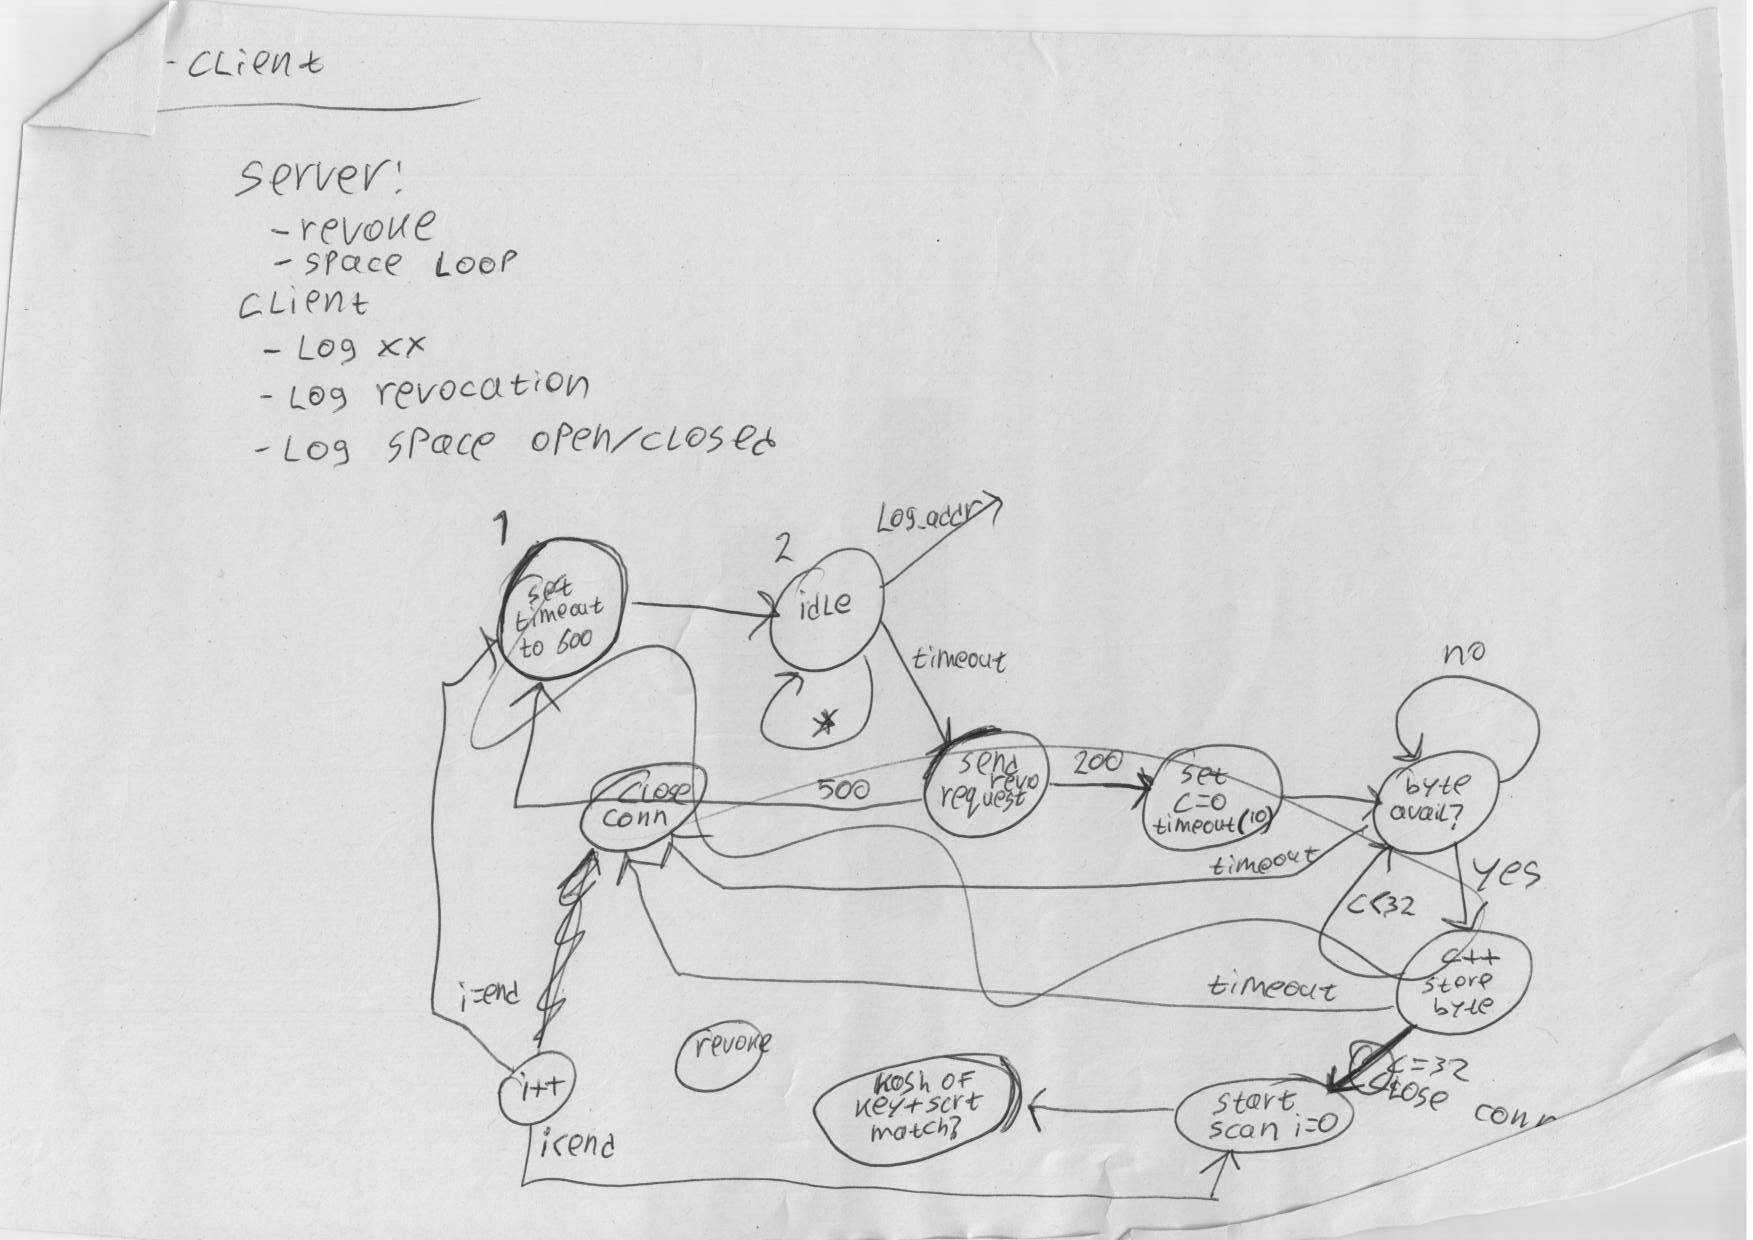 - CLient
server:
- revoke
- space Loop
CLient
- Log xx
- Log revocation
- Log space open/closed
1
set
timeout
to 600
2
idLe
Log_addr
timeout
*
send
revo
request
200
500
set
c=0
timeout(10)
no
byte
avail?
timeout
yes
c<32
c++
store
byte
timeout
c=32
close conn
CLose
conn
i=end
i++
i<end
revoke
hash of
key+scrt
match?
start
scan i=0